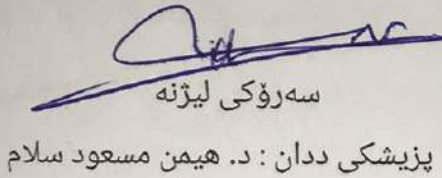 سەرۆکی لیژنە
پزیشکی ددان : د. هیمن مسعود سلام